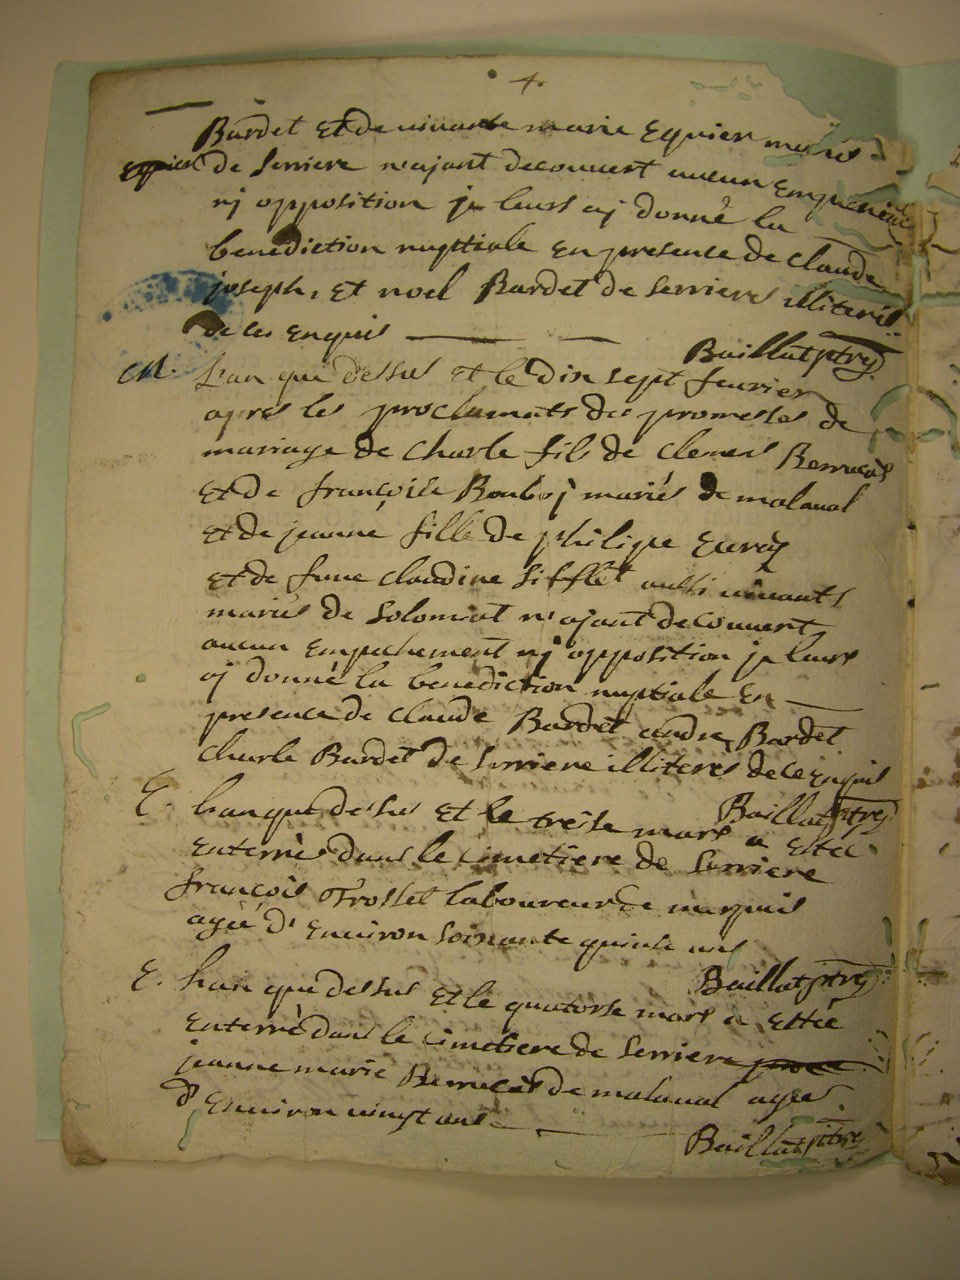 4.
Bardet et de vivante marie Eguier mariés
de Serriere n'ajant decouvert aucun Empechem
nj opposition je leurs aj donné la
benediction nuptiale en presence de claude
joseph, et noel Bardet de Serriere illiterés
de ce enquis
Baillat ptre
M. L'an que dessus et le dix sept fevrier
apres les proclamats des promesses de
mariage de Charle fils de Clement
et de françoise mariés de malaval
et de jeanne fille de philipe
et de fune claudine Sifflet aussi vivants
mariés de Solomiat n'ajant decouvert
aucun empechement nj opposition je leurs
aj donné la benediction nuptiale En
presence de Claude Bardet andre Bardet
Charle Bardet de Serriere illiteres de ce enquis
Baillat ptre
E. L'an que dessus et le treise mars a estée
enterré dans le cimetiere de Serriere
françois Trosset laboureur de
agé d'Environ soixante quinse ans
Baillat ptre
E. L'an que dessus et le quatorse mars a estée
enterré dans le cimetiere de Serriere
jeanne marie de malaval agée
d'Environ vingt ans
Baillat ptre